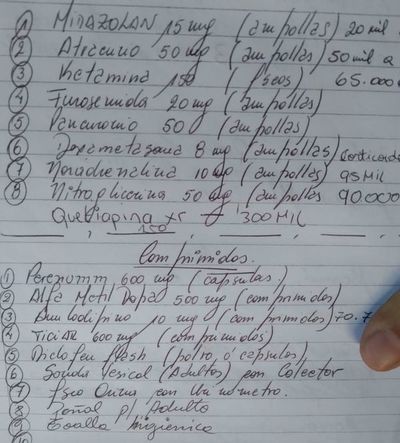 ① MIDAZOLAN 15 mg (ampollas) 20 mil
② Atracurio 50 mg (ampollas) 50 mil a
③ Ketamina 150 (fscos) 65.000
④ Furosemida 20 mg (ampollas)
⑤ Pancuronio 50 (ampollas)
⑥ Dexametasona 8 mg (ampollas)
⑦ Noradrenalina 10 mg (ampollas) 95 MIL
⑧ Nitroglicerina 50 mg (ampollas 90.000
Quetiapina xr 150 300 MIL
Comprimidos.
① 600 mg (capsulas.)
② Alfa Metil Dopa 500 mg (comprimidos)
③ Amlodipino 10 mg (comprimidos) 70.7
④ 600 mg (comprimidos)
⑤ Diclofen flash (polvo ó capsulas)
⑥ Sonda vesical (Adultos) con Colector
⑦ fsco Orina con Urinometro.
⑧ Pañal p/ Adulto
⑨ Toalla higienica
⑩